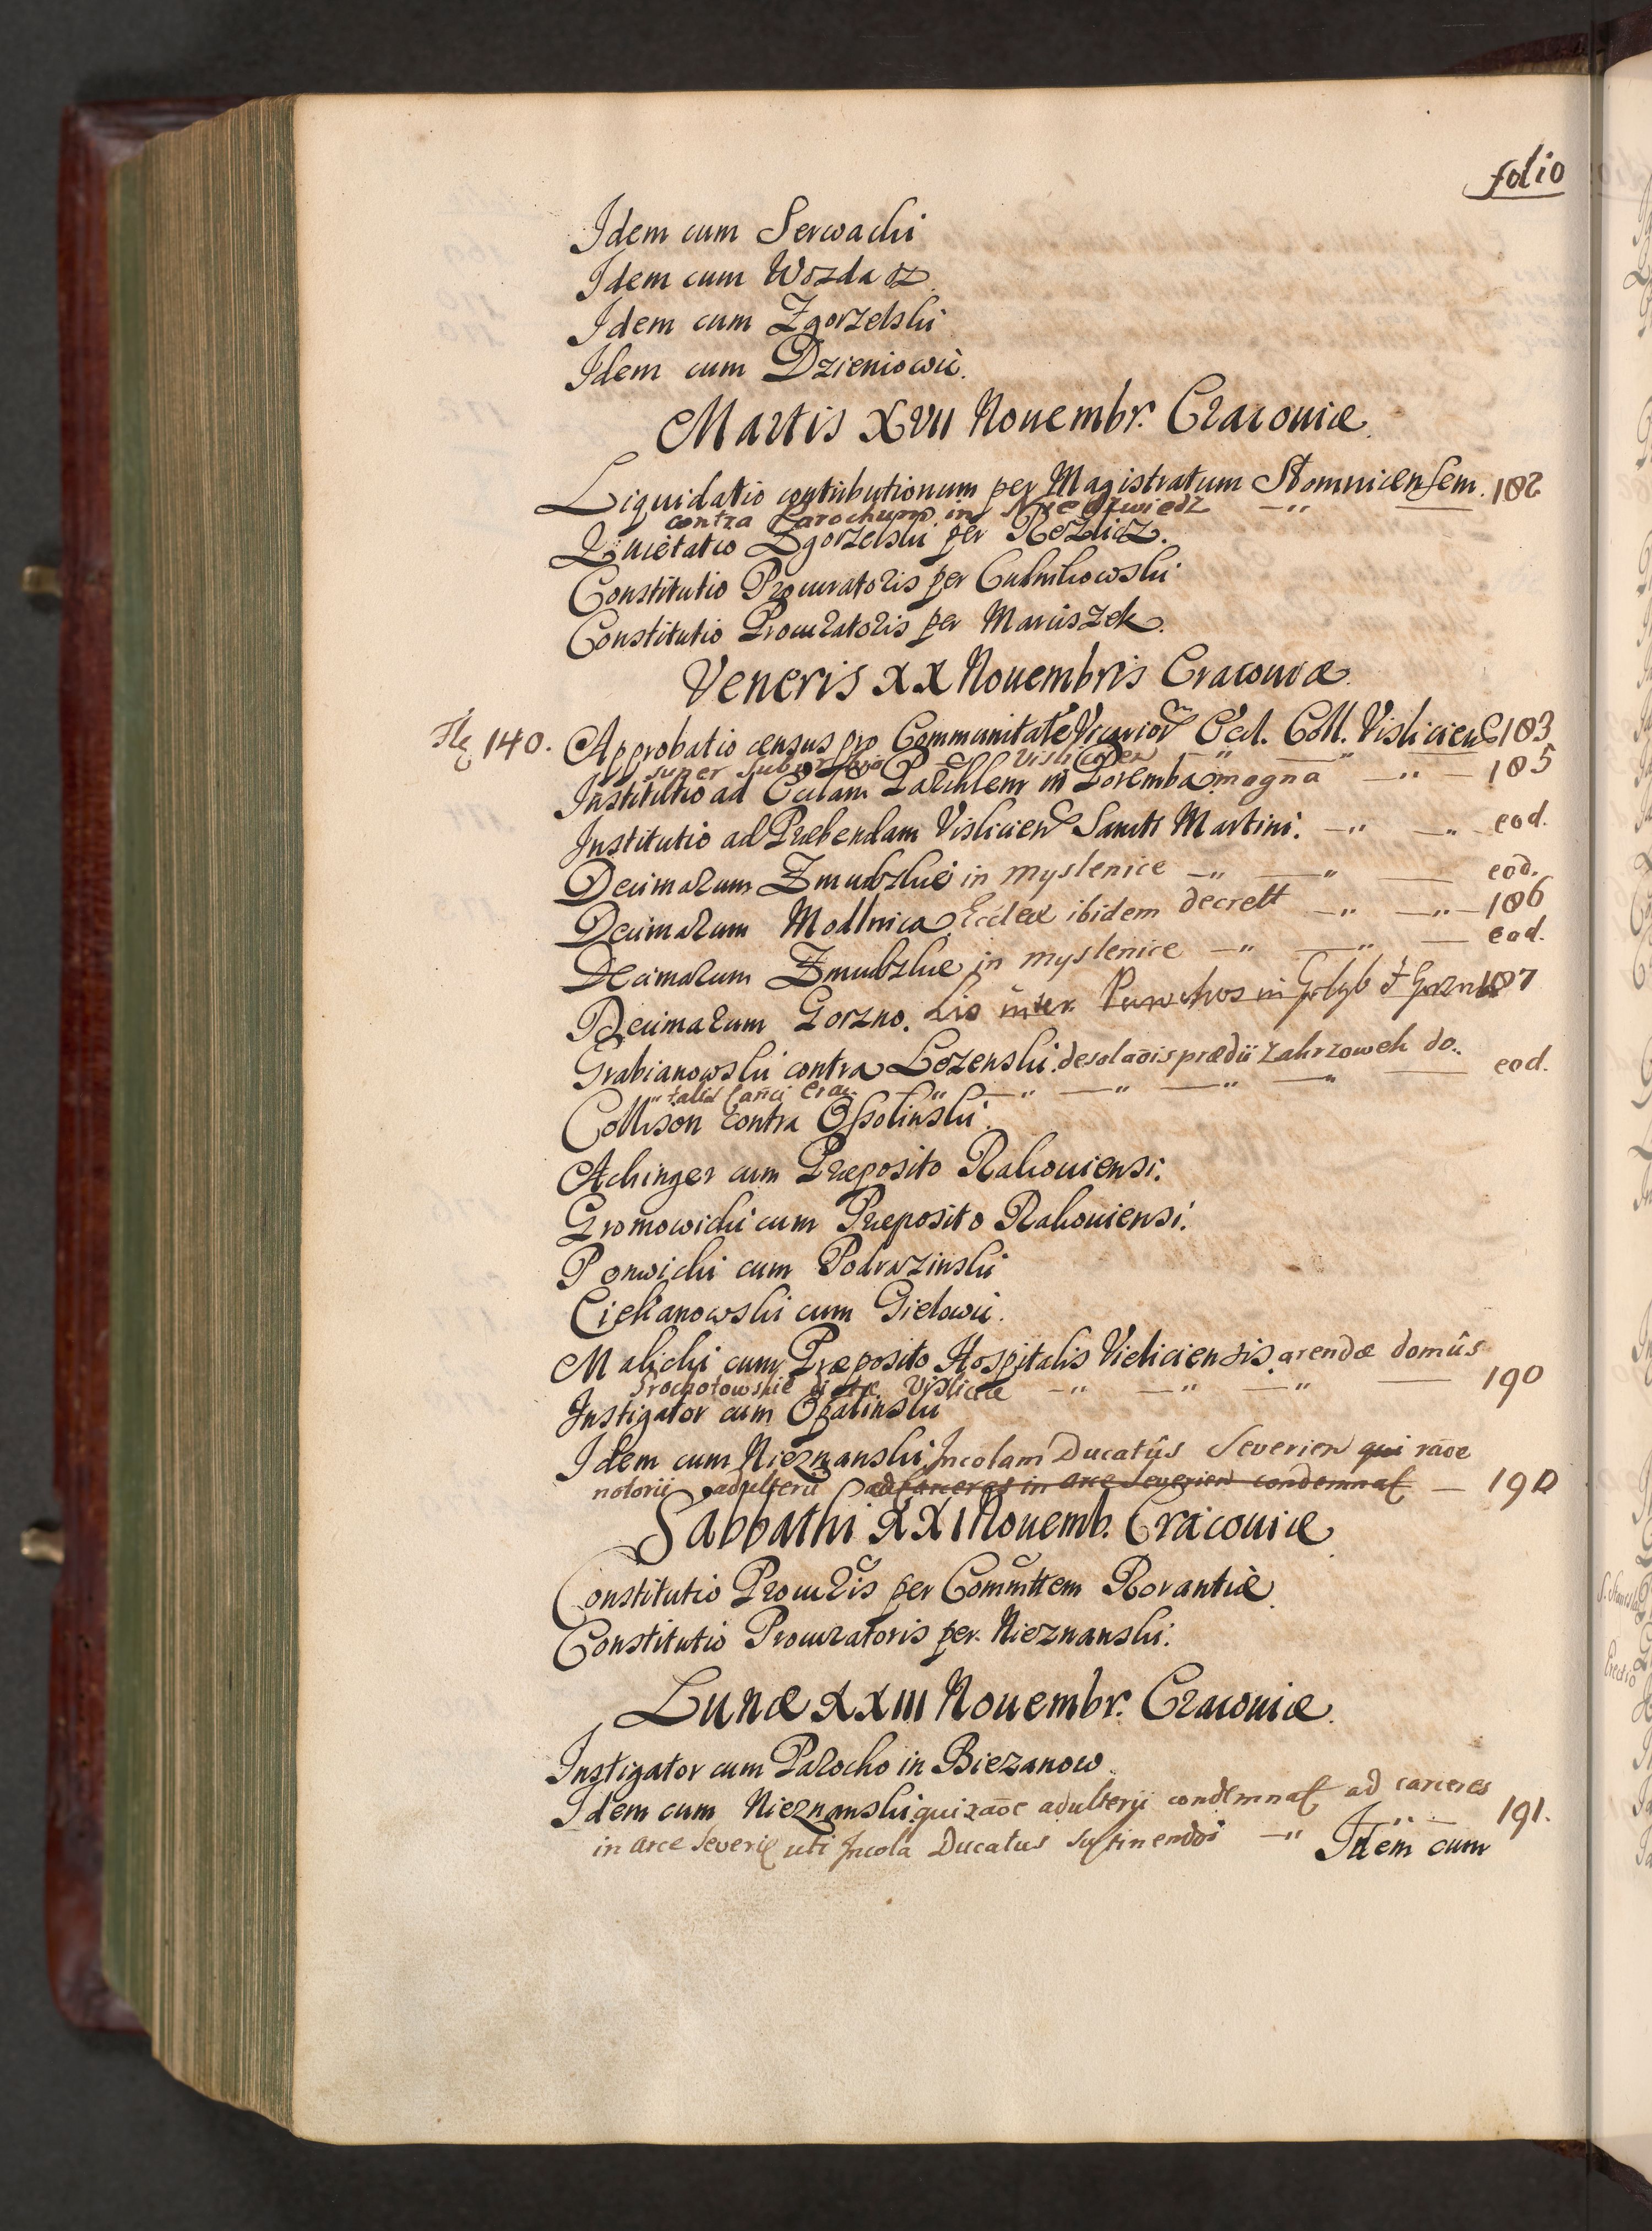 folio
Idem cum Serwachi
Idem cum Wozda cz.
Idem cum Zgorzelski
Idem cum Dzieniowii.
Martis XVII Nouembr. Cracouiæ.
Liquidatio contributionum per Magistratum Slomnicensem. 182
contra Parochum in Niedzwiedz —"— ——
Quietatio Zgorzelski per Roznicz.
Constitutio Procuratoris per Culnikowski
Constitutio Procuratoris per Mariiszek.
Veneris XX Nouembris Cracouiæ.
140. Approbatio census pro Communitate Vicarior Eccl. Coll. Visliciens 183
super suburbio Vislicien —"— —"—
Institutio ad Ecclam Parchlem in Poremba magna —"— 185
Institutio ad Præbendam Visliciens Sancti Martini. —"— —"— eod.
Decimarum Zmudzkie in myslenice —"— —"— —— eod.
Decimarum Modlnica Ecclæ ibidem decrett —"— —"— 186
Decimarum Zmudzkie in myslenice —"— —"— —— eod.
Decimarum Gorzno. Lis inter Parochos in Golyb & Gorzno 187
Grabianowski contra Lozenski. desolaōis prædii Zakrzowek do..
eod.
Collison contra Ossolinski.
Achinger cum Præposito Rakouiensi.
Gromowicki cum Præposito Rakouiensi.
Ponwicki cum Podrazinski
Ciekanowski cum Gielowii.
Malicki cum Præposito Hospitalis Vieliciensis. arendæ domûs
Vislicæ —"— —"— —"— —— 190
Instigator cum Opalinski
Idem cum Nieznanski Incolam Ducatûs Severien qui raõe
notorii adulterii ad carceres in arce Severien condemnat — 190
Sabbathi XXI Nouemb. Cracouiæ
Constitutio Procuris per Committem Rorantiæ.
Constitutio Procuratoris per Nieznanski.
Lunæ XXIII Nouembr. Cracouiæ.
Instigator cum Parocho in Biezanow
Idem cum Nieznanski qui raõe adulterii condemnat ad carceres
in arce Severie uti Incola Ducatus sustinendos —"— —"— 191.
Idem cum